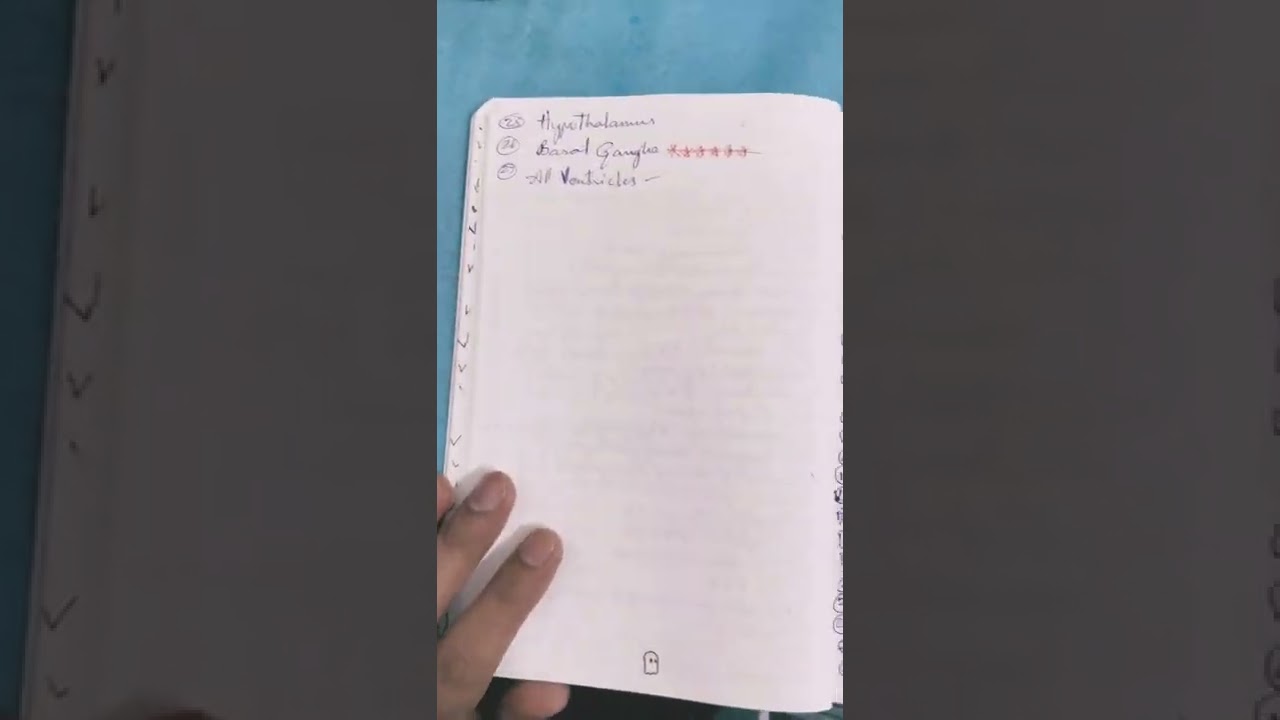 25 Hypothalamus
26 Basal Ganglia ******
27 All Ventricles -